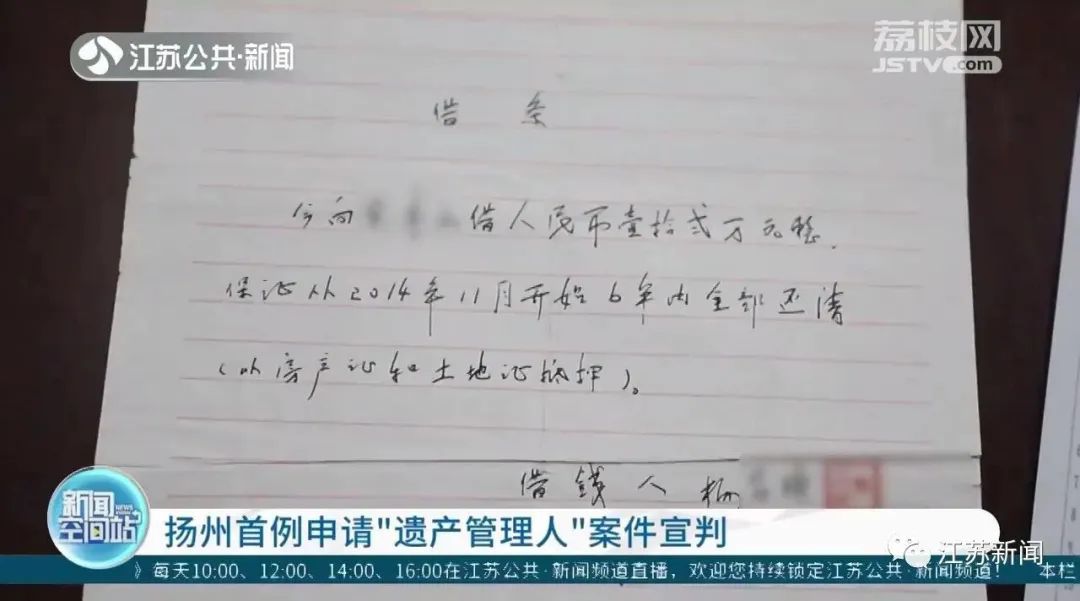 江苏公共·新闻
荔枝网
JSTV.com
借条
今向 借人民币壹拾贰万元整.
保证从2014年11月开始6年内全部还清
(以房产证和土地证抵押)。
借錢人 杨
新闻
NEWS
空间站
扬州首例申请"遗产管理人"案件宣判
江苏新闻
》每天10:00、12:00、14:00、16:00在江苏公共·新闻频道直播，欢迎您持续锁定江苏公共·新闻频道！ 本栏